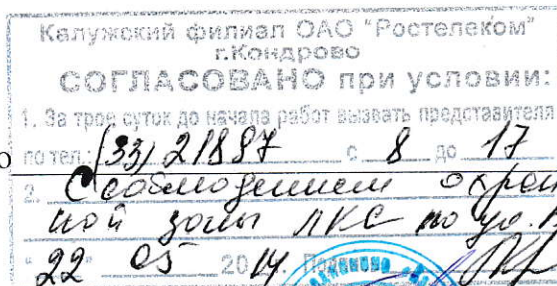 Калужский филиал ОАО "Ростелеком"
г.Кондрово
СОГЛАСОВАНО при условии:
1. За трое суток до начала работ вызвать представителя
по тел.: (33) 21887 с 8 до 17
2. С соблюдением охран
ной зоны ЛКС по ул.
"22" 05 2014. Подпись